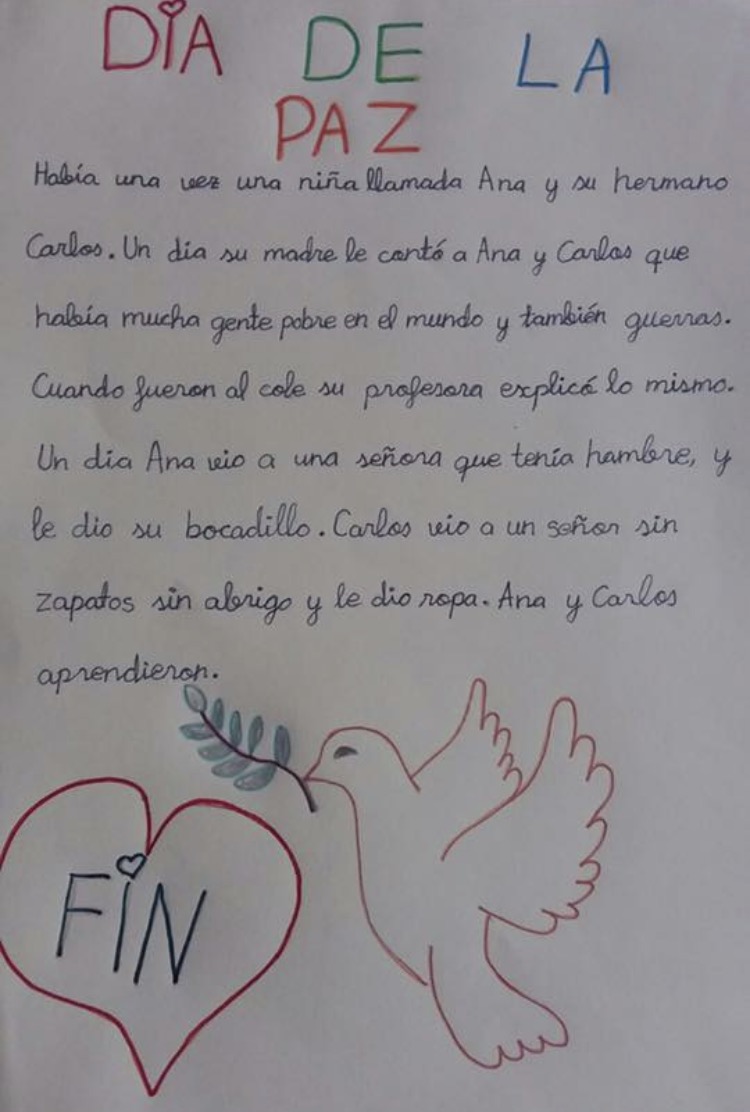 DÍA DE LA
PAZ
Había una vez una niña llamada Ana y su hermano
Carlos. Un día su madre le contó a Ana y Carlos que
había mucha gente pobre en el mundo y también guerras.
Cuando fueron al cole su profesora explicó lo mismo.
Un día Ana vio a una señora que tenía hambre, y
le dio su bocadillo. Carlos vio a un señor sin
zapatos sin abrigo y le dio ropa. Ana y Carlos
aprendieron.
FIN